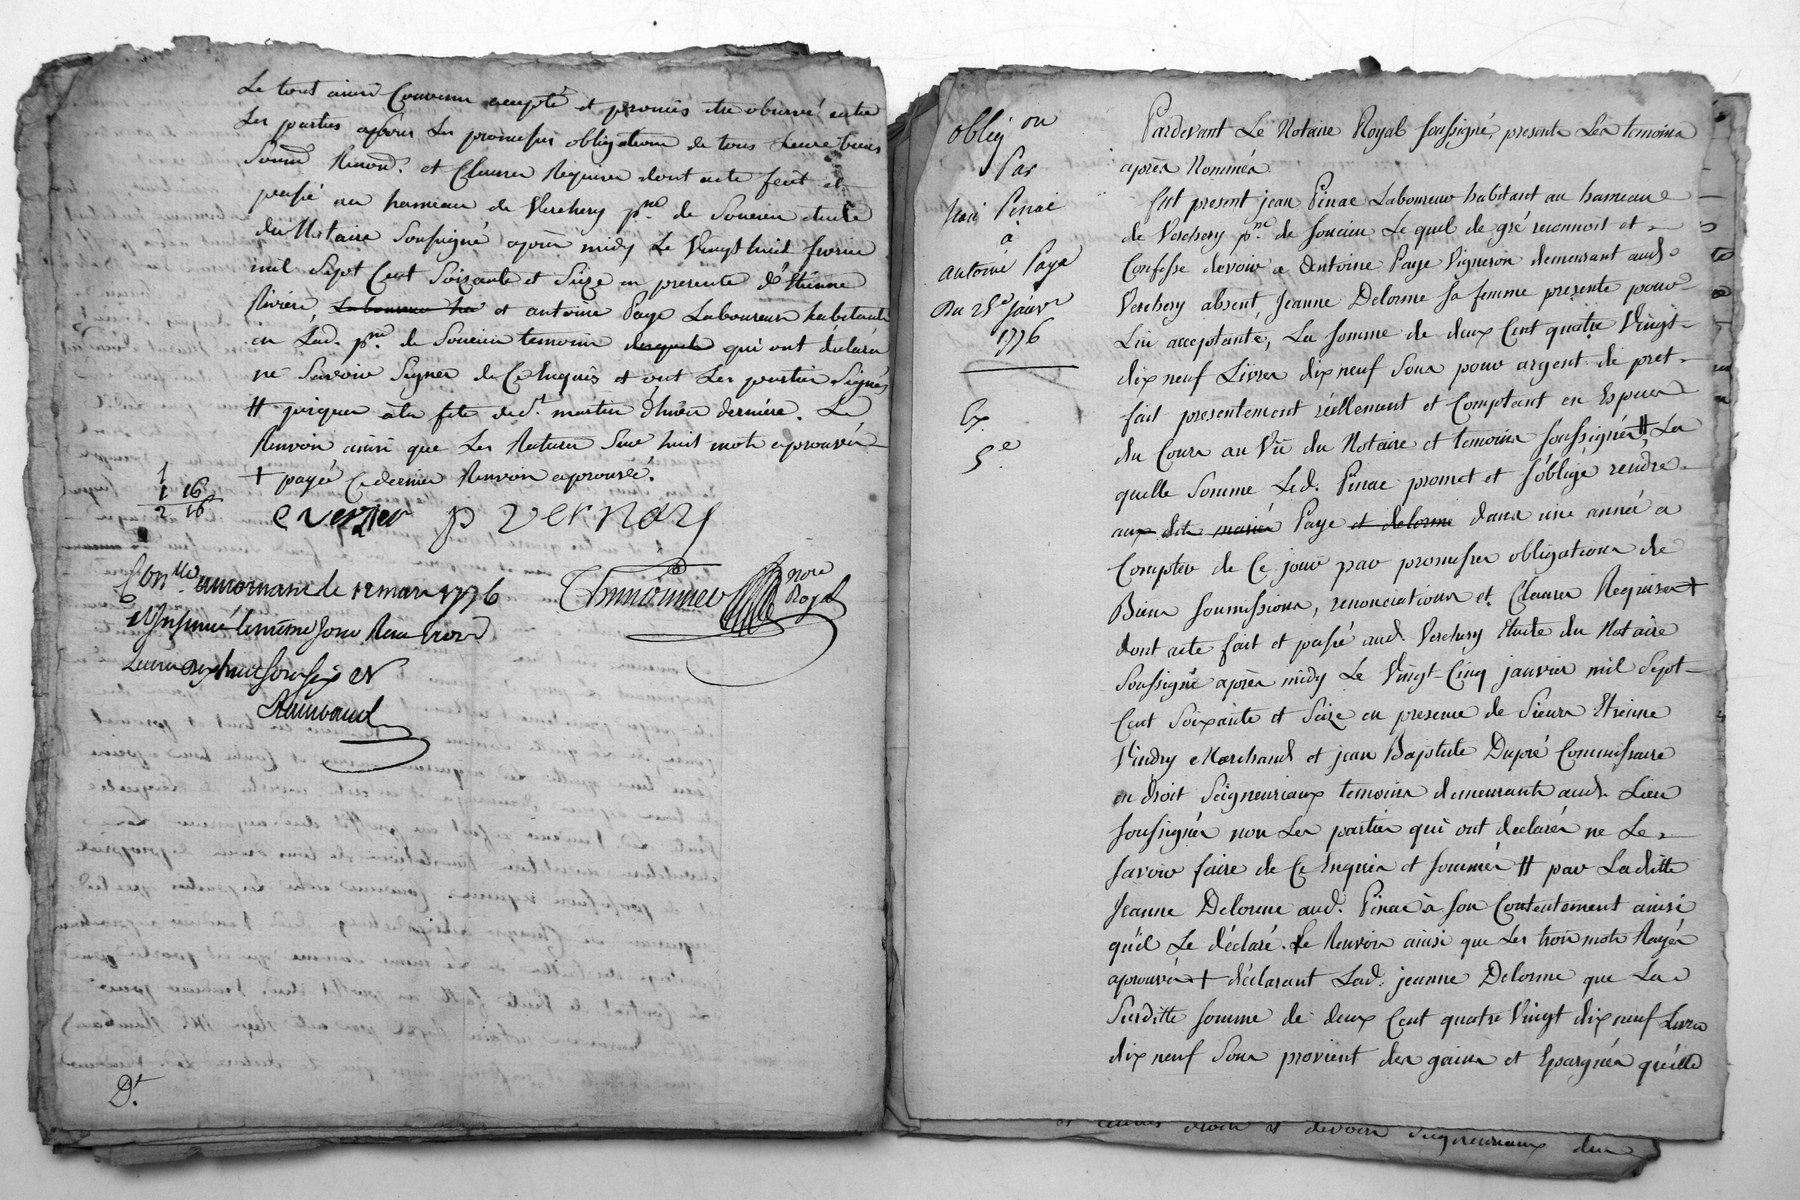 Le tout ainsi Convenu accepté et promis être observé entre
Les parties apéine Les promesses obligations de tous Leurs biens
Soum. Renond. et Clauses Requises dont acte fait et
passé au hameau de Verchery p.sse de Soucieu étude
du Notaire Soussigné après midy Le Vingt huit fevrier
mil Sept Cent Soixante et Seize en presence d'Etienne
Riviere, Laboureur ha et antoine Paye Laboureur habitants
en Lad. p.sse de Soucieu temoins lesquels qui ont déclaré
ne Savoir Signer de Ce Enquis et ont Les parties Signés
# jusques à la fete de St. martin d'hiver derniere. Le
Renvoy ainsi que Les Ratures Sur huit mots aprouvés
+ payée Ce dernier Renvoin aprouvée.
1
1 16
2 16
e verzier p vernay
Con.lle a mornant le 12 mars 1776
et Insinué le même jour Reçu trois
Livres dix huit sous six d
Raimbaud
Thimonnier Nore
Royal
D.t
oblig.on
Par
Jean Pinac
à
antoine Paye
Du 25e Janv.r
1776
Ex.
S.e
Pardevant Le Notaire Royal Soussigné, presents Les temoins
après Nommés
fut present jean Pinac Laboureur habitant au hameau
de Verchery p.sse de Soucieu Le quel de gré reconnoit et
Confesse devoir a Antoine Paye Vigneron demeurant aud.
Verchery absent Jeanne Delorme Sa femme presente pour
Lui acceptante, La Somme de deux Cent quatre Vingt
dix neuf Livres dix neuf Sous pour argent de pret
fait presentement réellement et Comptant en Especes
du Cours au Vû du Notaire et temoins Soussignés # La
quelle Somme Led. Pinac promet et s'oblige rendre
aux dits mariés Paye et delorme dans une année a
Compter de Ce jour par promesses obligations de
Biens Soumissions, renonciations et Clauses Requises +
dont acte fait et passé aud. Verchery Etude du Notaire
Soussigné après midy Le Vingt-Cinq janvier mil Sept
Cent Soixante et Seize en presence de Sieurs Etienne
Vindry Marchand et jean Baptiste Dupré Commissaire
en droit Seigneuriaux temoins demeurants aud. Lieu
Soussignés non Les parties qui ont declarés ne Le
Savoir faire de Ce Enquis et Sommés # par Laditte
Jeanne Delorme aud. Pinac à Son Contentement ainsi
qu'il Le déclaré. Le Renvoin ainsi que Les trois mots Rayés
aprouvés + déclarant Lad. jeanne Delorme que La
Susditte Somme de deux Cent quatre Vingt dix neuf Livres
dix neuf Sous provient des gains et Epargnes qu'elle
droits et devoirs Seigneuriaux du